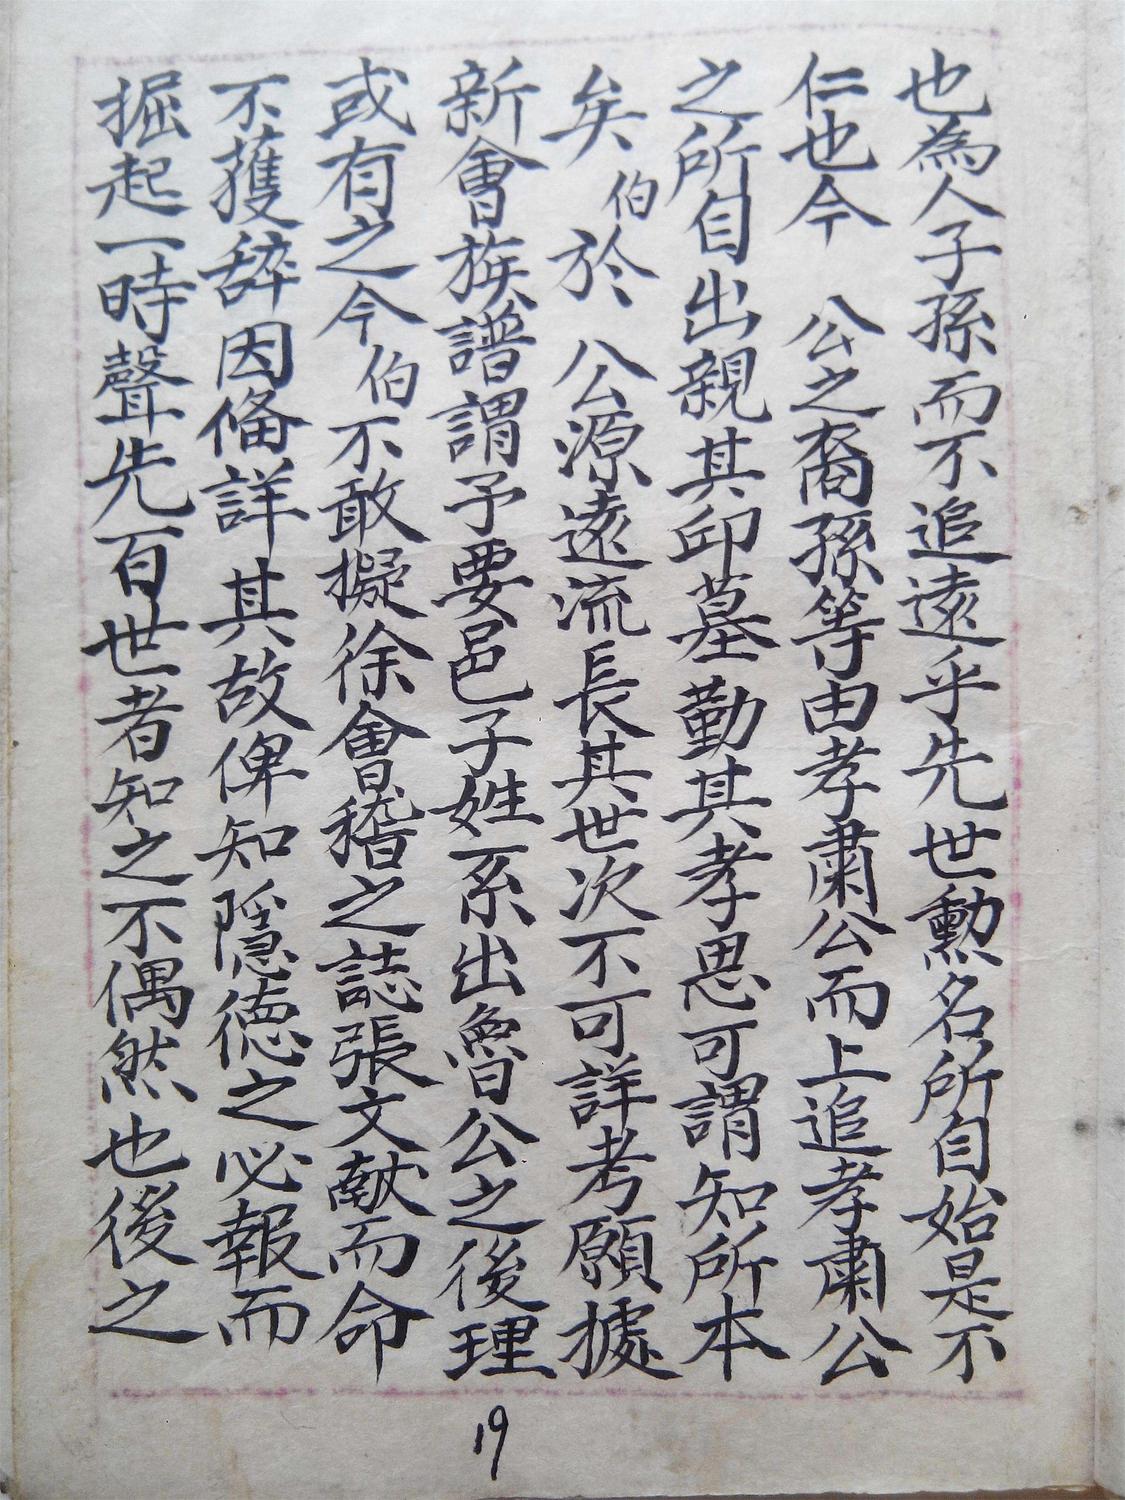 也為人子孫而不追遠乎先世勳名所自始是不
仁也今　公之裔孫等由孝肅公而上追孝肅公
之所自出親其邱墓勤其孝思可謂知所本
矣伯於　公源遠流長其世次不可詳考願據
新會族譜謂予要邑子姓系出魯公之後理
或有之今伯不敢擬徐會稽之誌張文献而命
不獲辞因俻詳其故俾知隱德之必報而
掘起一時聲先百世者知之不偶然也後之
19